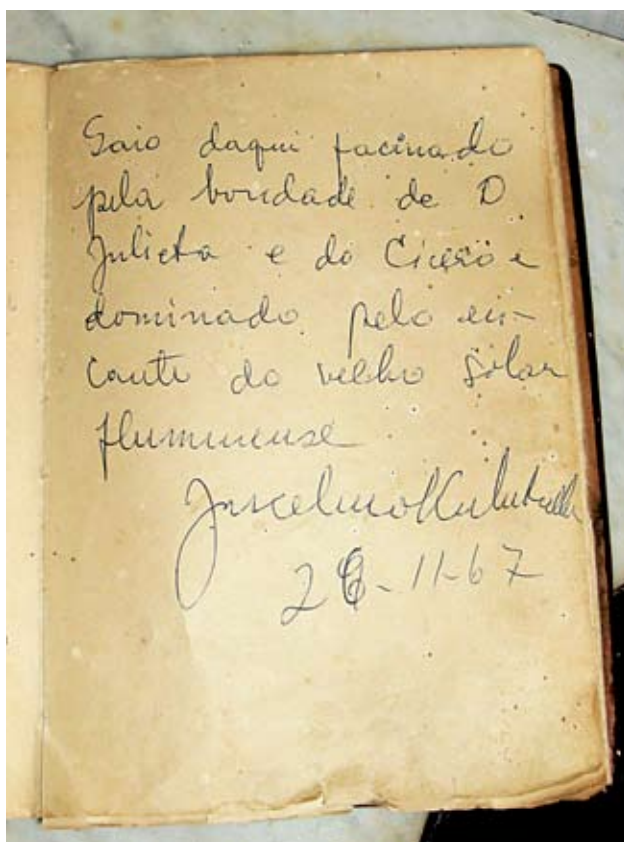 Saio daqui facinado
pela bondade de D
Julieta e do Cicero e
dominado pelo en-
canto do velho solar
fluminense
Juscelino Kubitschek
26-11-67